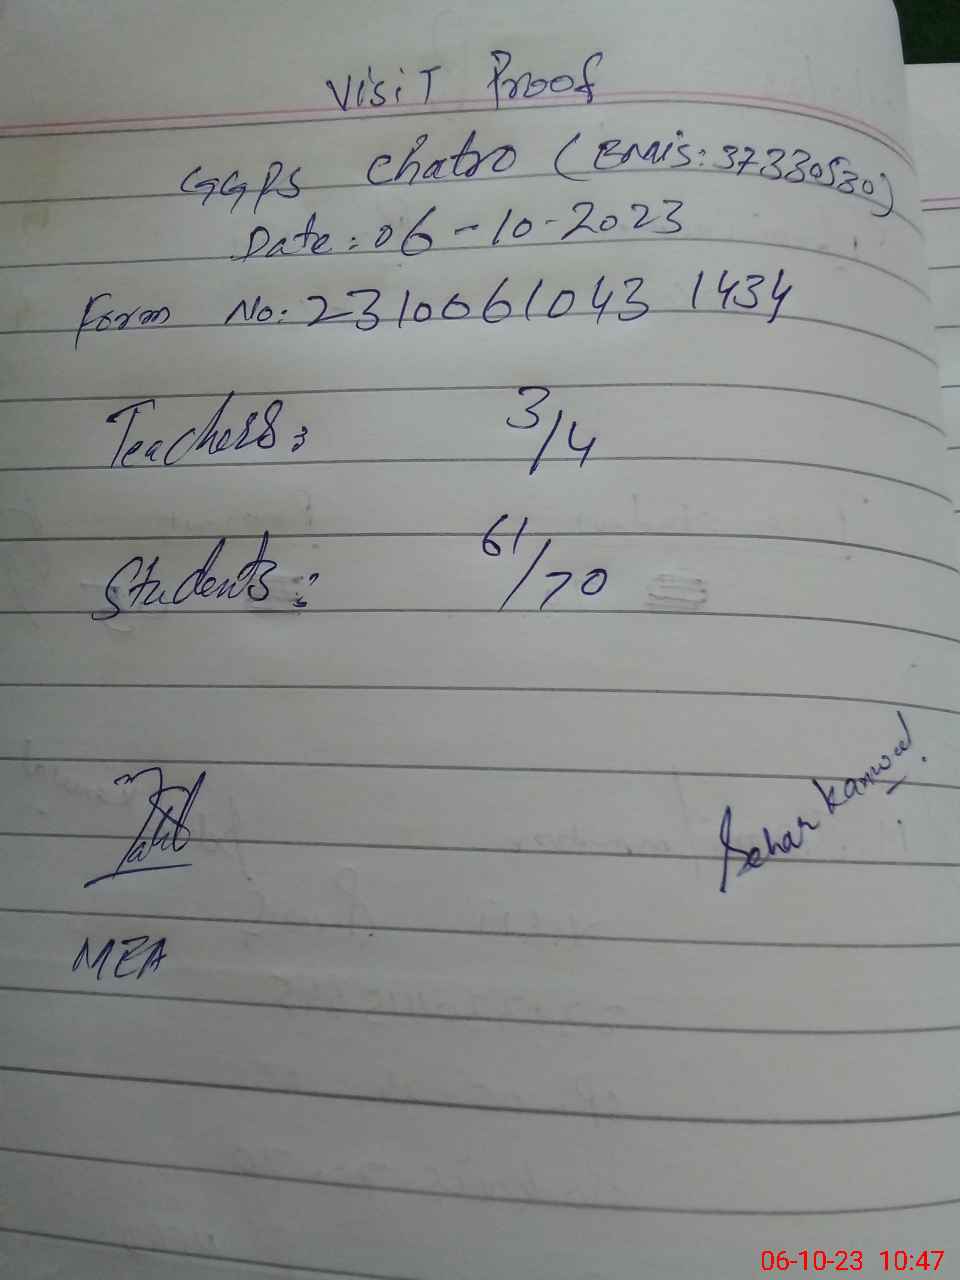 Visit Proof
GGPS Chatro (EMIS: 37330530)
Date: 06-10-2023
Form No: 2310061043 1434
Teachers: 3/4
Students: 61/70
Sehar Kanwal.
MEA
06-10-23 10:47